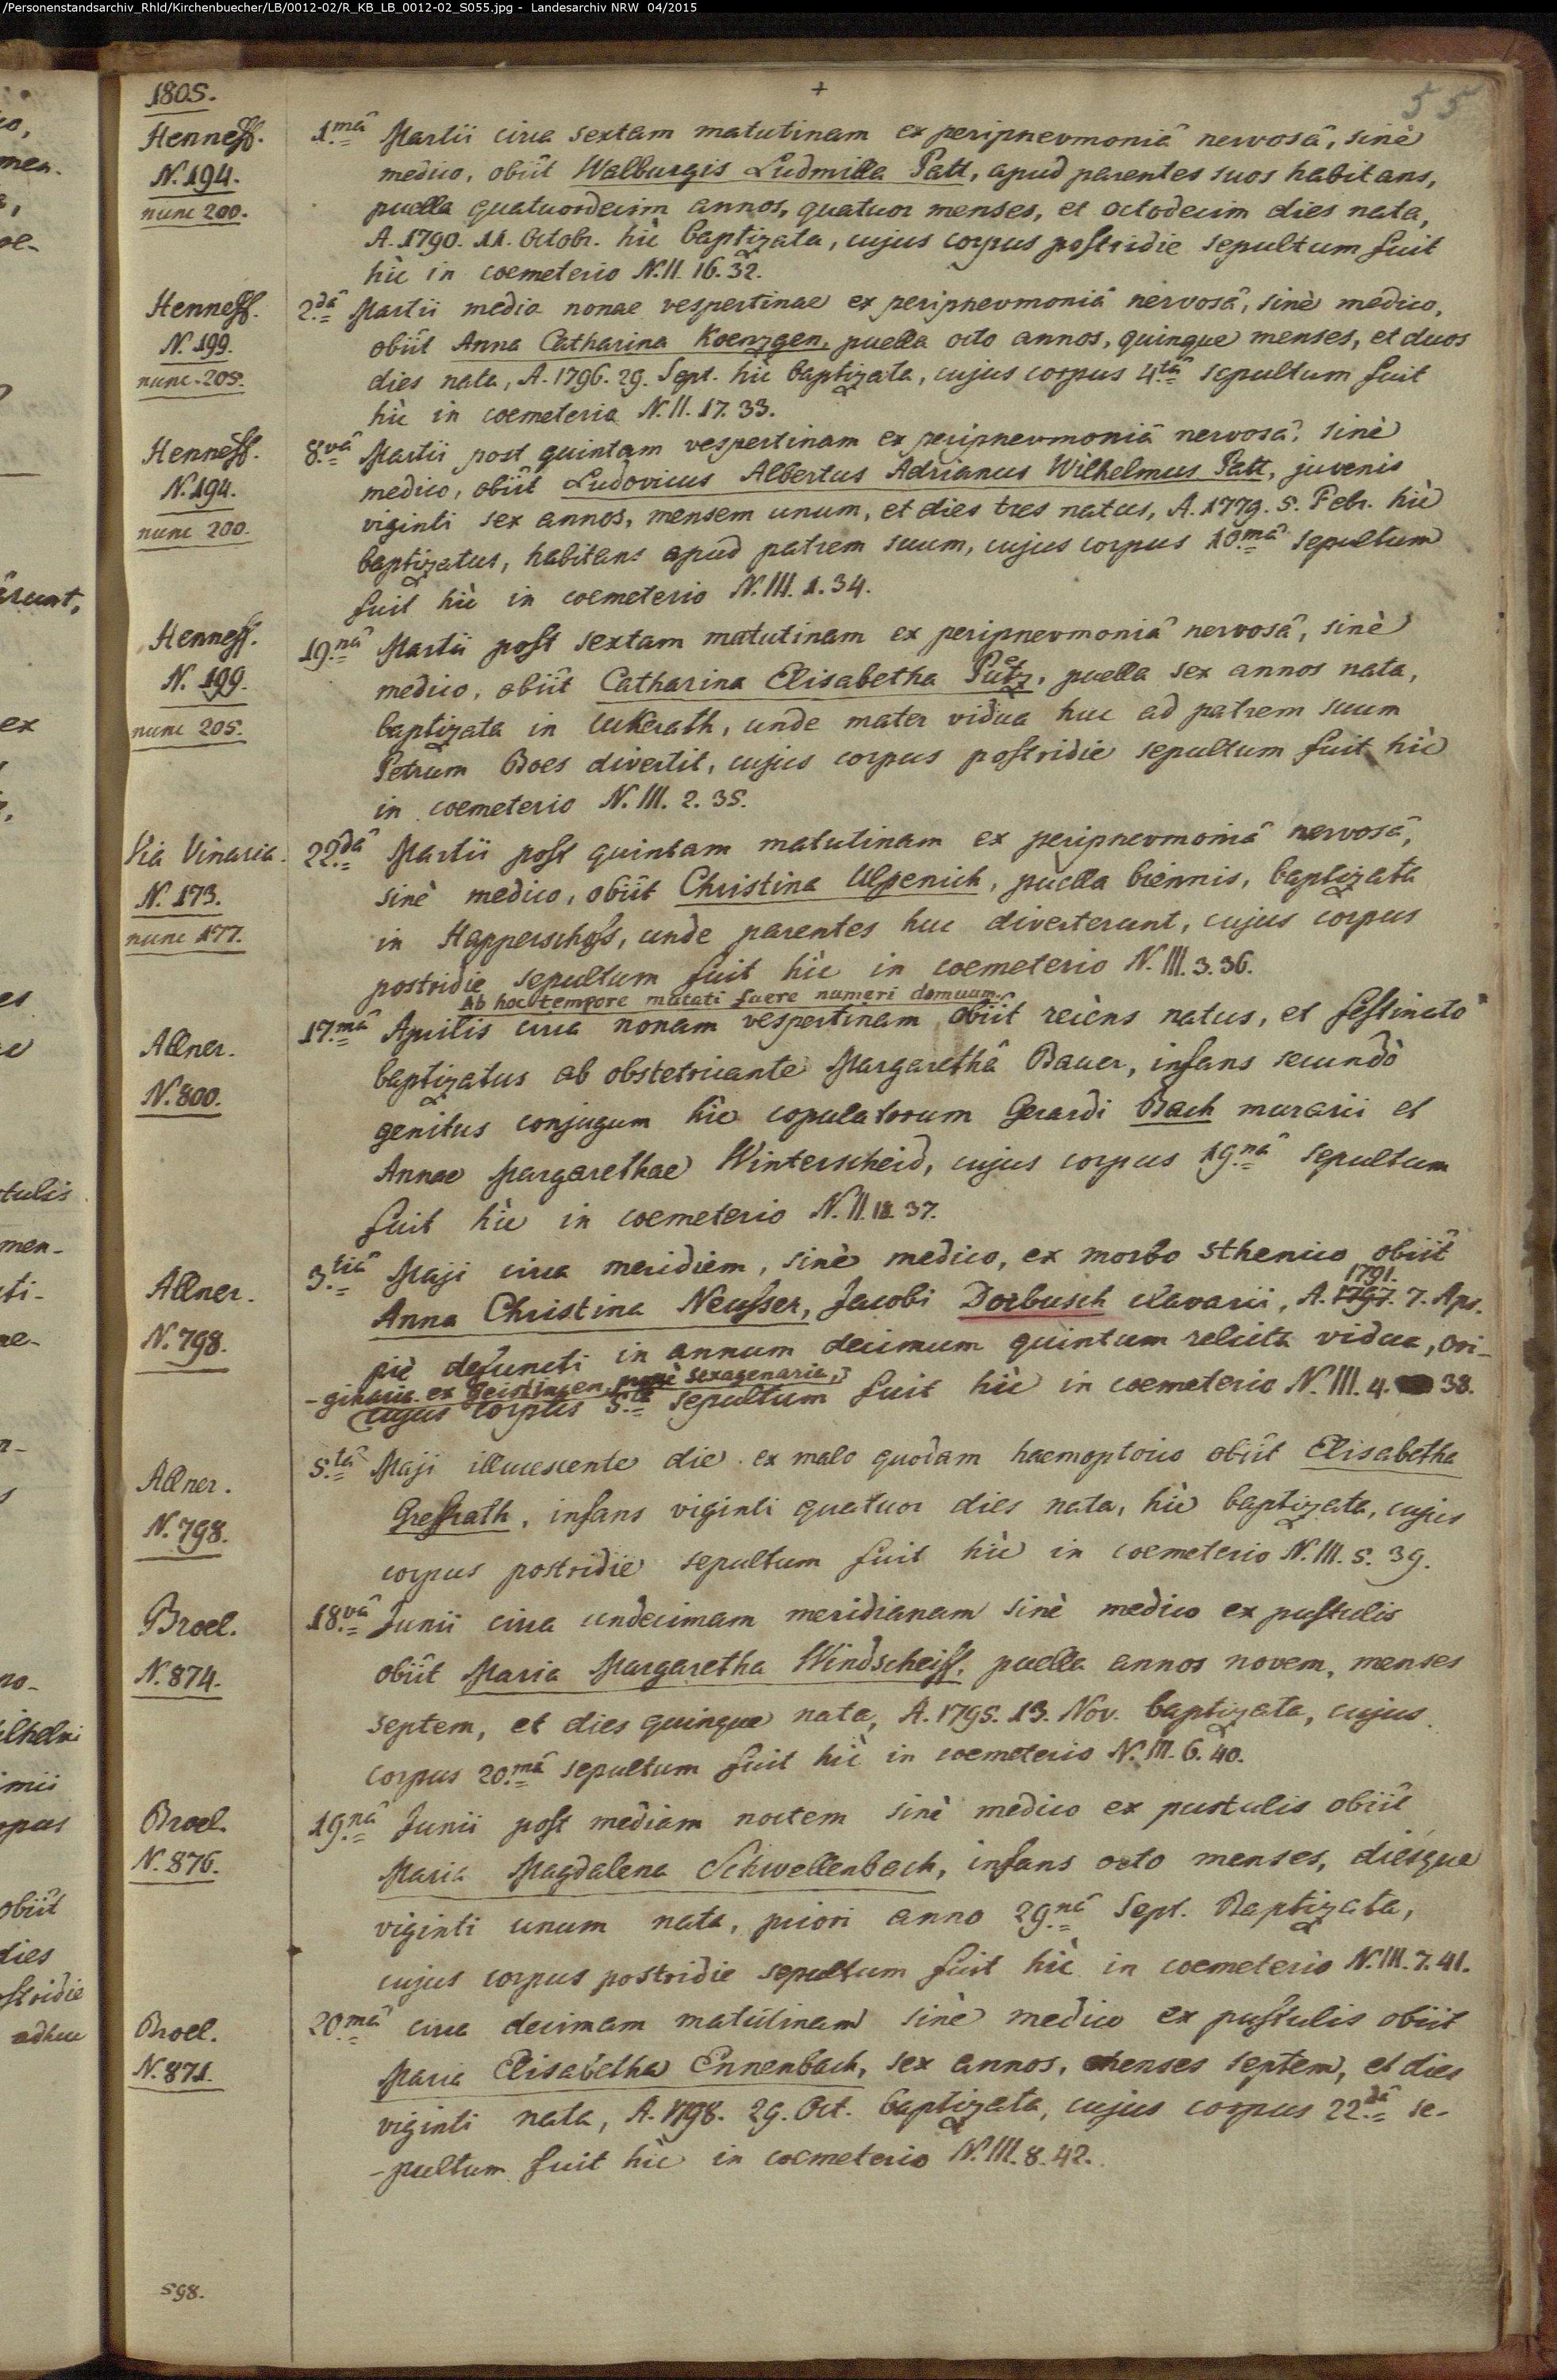 /Personenstandsarchiv_Rhld/Kirchenbuecher/LB/0012-02/R_KB_LB_0012-02_S055.jpg - Landesarchiv NRW 04/2015
1805.
+
55
Henneff.
N. 194.
nunc 200.
1.mâ Martii circa sextam matutinam ex peripnevmoniâ nervosâ, sinè
medico, obiit Walburgis Ludmilla Patt, apud parentes suos habitans,
puella quatuordecim annos, quatuor menses, et octodecim dies nata,
A. 1790. 11. Octobr. hìc baptizata, cujus corpus postridie sepultum fuit
hìc in coemeterio N. II. 16. 32.
Henneff.
N. 199.
nunc 205.
2.dâ Martii media nonae vespertinae ex peripnevmoniâ nervosâ, sinè medico,
obiit Anna Catharina Koenzgen, puella octo annos, quinque menses, et duos
dies nata, A. 1796. 29. Sept. hìc baptizata, cujus corpus 4.tâ sepultum fuit
hìc in coemeterio N. II. 17. 33.
Henneff.
N. 194.
nunc 200.
8.vâ Martii post quintam vespertinam ex peripnevmoniâ nervosâ, sinè
medico, obiit Ludovicus Albertus Adrianus Wilhelmus Patt, juvenis
viginti sex annos, mensem unum, et dies tres natus, A. 1779. 5. Febr. hìc
baptizatus, habitans apud patrem suum, cujus corpus 10.mâ sepultum
fuit hìc in coemeterio N. III. 1. 34.
Henneff.
N. 199.
nunc 205.
19.nâ Martii post sextam matutinam ex peripnevmoniâ nervosâ, sinè
medico, obiit Catharina Elisabetha Pütz, puella sex annos nata,
baptizata in Uckerath, unde mater vidua huc ad patrem suum
Petrum Boes divertit, cujus corpus postridie sepultum fuit hìc
in coemeterio N. III. 2. 35.
Via Vinaria.
N. 173.
nunc 177.
22.dâ Martii post quintam matutinam ex peripnevmoniâ nervosâ,
sinè medico, obiit Christina Ulpenich, puella biennis, baptizata
in Happerschoss, unde parentes huc diverterunt, cujus corpus
postridie sepultum fuit hìc in coemeterio N. III. 3. 36.
Ab hoc tempore mutati fuere numeri domuum.
Allner.
N. 800.
17.mâ Aprilis circa nonam vespertinam obiit recèns natus, et festinatò
baptizatus ab obstetricante Margarethâ Bauer, infans secundò
genitus conjugum hìc copulatorum Gerardi Bach murarii et
Annae Margarethae Winterscheid, cujus corpus 19.nâ sepultum
fuit hìc in coemeterio N. II. 18. 37.
Allner.
N. 798.
3.tiâ Maji circa meridiem, sinè medico, ex morbo sthenico obiit
1791.
Anna Christina Neusser, Jacobi Dorbusch clavarii, A. 1797. 7. Apr.
piè defuncti in annum decimum quintum relicta vidua, ori-
-ginaria ex Geistingen, penè sexagenaria,
cujus corpus 5.tâ sepultum fuit hìc in coemeterio N. III. 4. 38.
Allner.
N. 798.
5.tâ Maji illucescente die ex malo quodam haemoptoico obiit Elisabetha
Gressrath, infans viginti quatuor dies nata, hìc baptizata, cujus
corpus postridie sepultum fuit hìc in coemeterio N. III. 5. 39.
Broel.
N. 874.
18.vâ Junii circa undecimam meridianam sinè medico ex pustulis
obiit Maria Margaretha Windscheiff, puella annos novem, menses
septem, et dies quinque nata, A. 1795. 13. Nov. baptizata, cujus
corpus 20.mâ sepultum fuit hìc in coemeterio N. III. 6. 40.
Broel.
N. 876.
19.nâ Junii post mediam noctem sinè medico ex pustulis obiit
Maria Magdalena Schwellenbach, infans octo menses, diesque
viginti unum nata, priori anno 29.nâ Sept. Baptizata,
cujus corpus postridie sepultum fuit hìc in coemeterio N. III. 7. 41.
Broel.
N. 871.
20.mâ circa decimam matutinam sinè medico ex pustulis obiit
Maria Elisabetha Ennenbach, sex annos, menses septem, et dies
viginti nata, A. 1798. 29. Oct. baptizata, cujus corpus 22.dâ se-
-pultum fuit hìc in coemeterio N. III. 8. 42.
598.